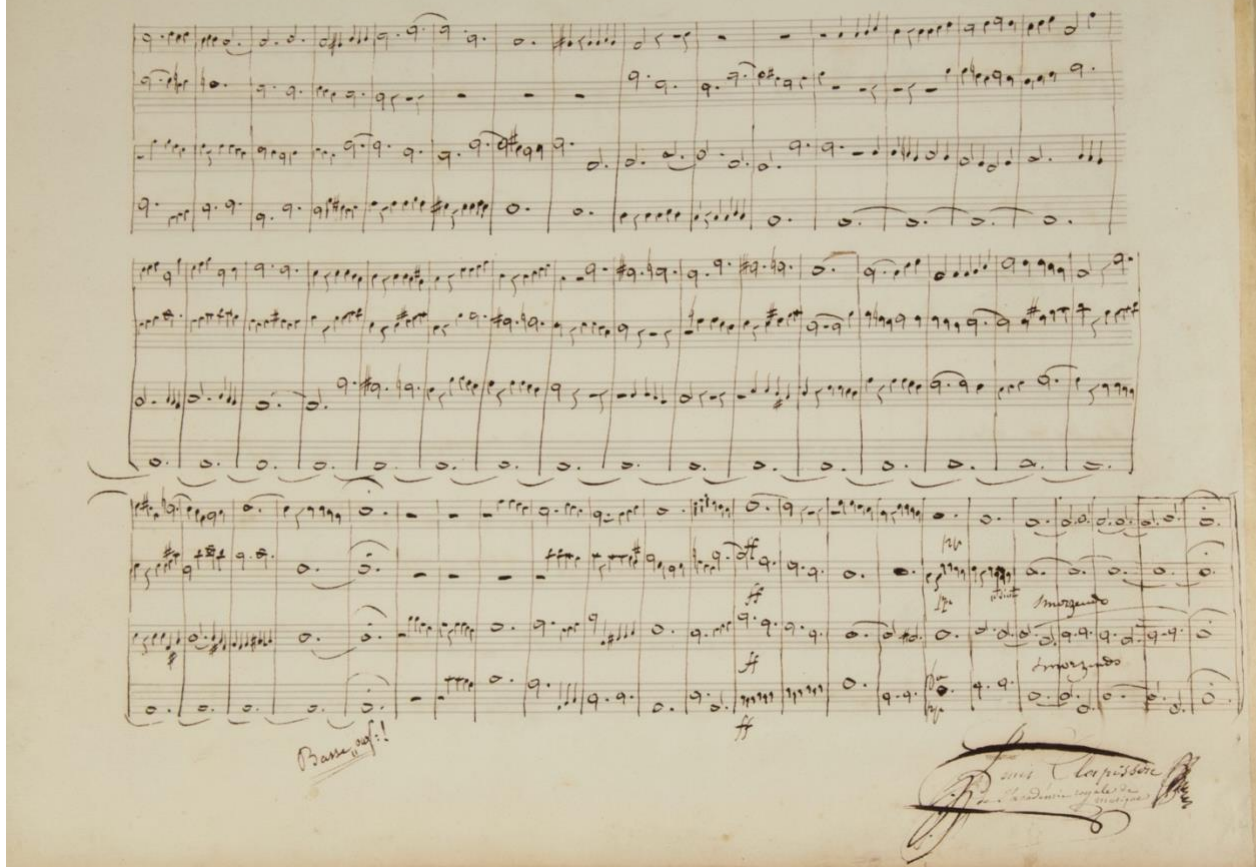 ff
pp
ff
pp
smorzando
ff
smorzando
pp
ff
Basse, ouf!!
Louis Clapisson
de l'académie royale de
musique